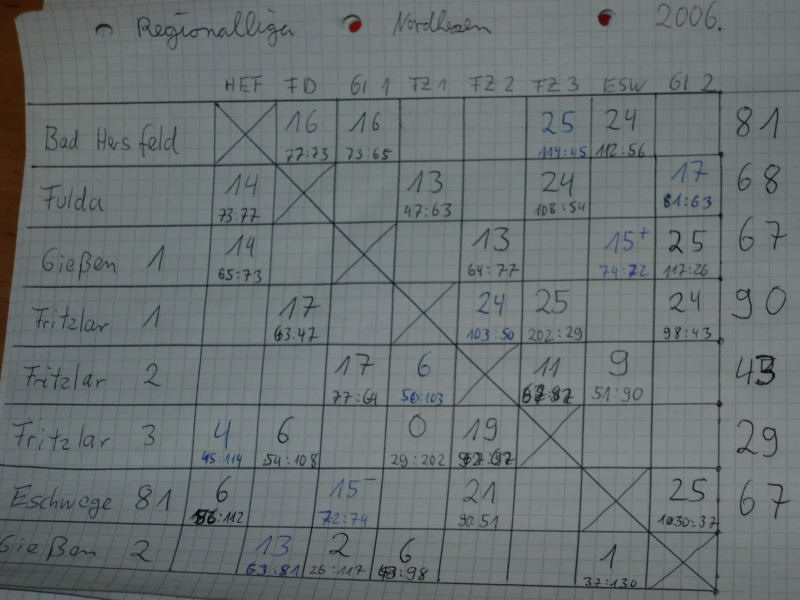 Regionalliga Nordhessen 2006.
HEF FD GI 1 FZ 1 FZ 2 FZ 3 ESW GI 2
Bad Hersfeld 16 16 25 24 81
77:73 73:65 114:45 112:56
Fulda 14 13 24 17 68
73:77 47:63 108:54 81:63
Gießen 1 14 13 15+ 25 67
65:73 64:77 74:72 117:26
Fritzlar 1 17 24 25 24 90
63:47 103:50 202:29 98:43
Fritzlar 2 17 6 11 9 43
77:64 50:103 51:90
Fritzlar 3 4 6 0 19 29
45:114 54:108 29:202
Eschwege 81 6 15- 21 25 67
56:112 72:74 90:51
Gießen 2 13 2 6 1
63:81 26:117 43:98 37:130